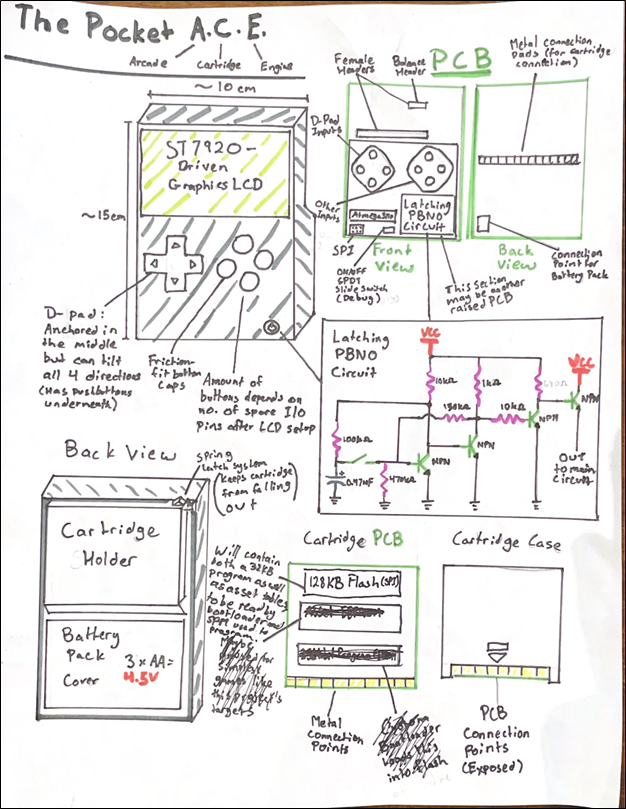 The Pocket A.C.E.
Arcade
Cartridge
Engine
~10 cm
~15cm
ST7920-
Driven
Graphics LCD
D-pad:
Anchored in
the middle
but can tilt
all 4 directions
(Has pushbuttons
underneath)
Friction-
fit button
caps
Amount of
buttons depends on
no. of spare I/O
Pins after LCD setup
PCB
Female
Headers
Balance
Header
D-Pad
Inputs
Other
Inputs
Latching
PBNO
Circuit
SPI
ON/OFF
SPDT
Slide Switch
(Debug)
Front
View
This section
may be another
raised PCB
Metal connection
pads (for cartridge
connection)
Back
View
Connection
Point for
Battery Pack
Latching
PBNO
Circuit
VCC
VCC
10kΩ
1kΩ
150kΩ
10kΩ
100kΩ
470kΩ
0.47µF
NPN
NPN
NPN
NPN
OUT
to main
Circuit
Back View
Spring
Latch system
(keeps cartridge
from falling
out)
Cartridge
Holder
Battery
Pack
Cover
3xAA=
4.5V
Cartridge PCB
Will contain
both a 32KB
Program as well
as asset tables
to be read by
bootloader and
SPM used to
program.
128KB Flash (SPI)
Metal
Connection
Points
Cartridge Case
PCB
Connection
Points
(Exposed)